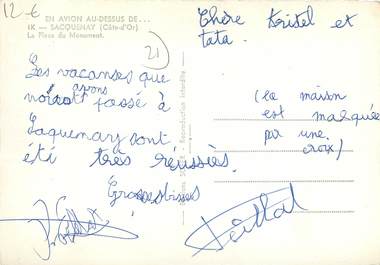 12 €
EN AVION AU-DESSUS DE...
IX — SACQUENAY (Côte-d'Or)
La Place du Monument.
21
Chère Kristel et
tata.
Les vacanses que
avons
passé à
Saquenay sont
été très réussies.
Grosses bisses
(la maison
est marquée
par une
croix)
Reproduction Interdite